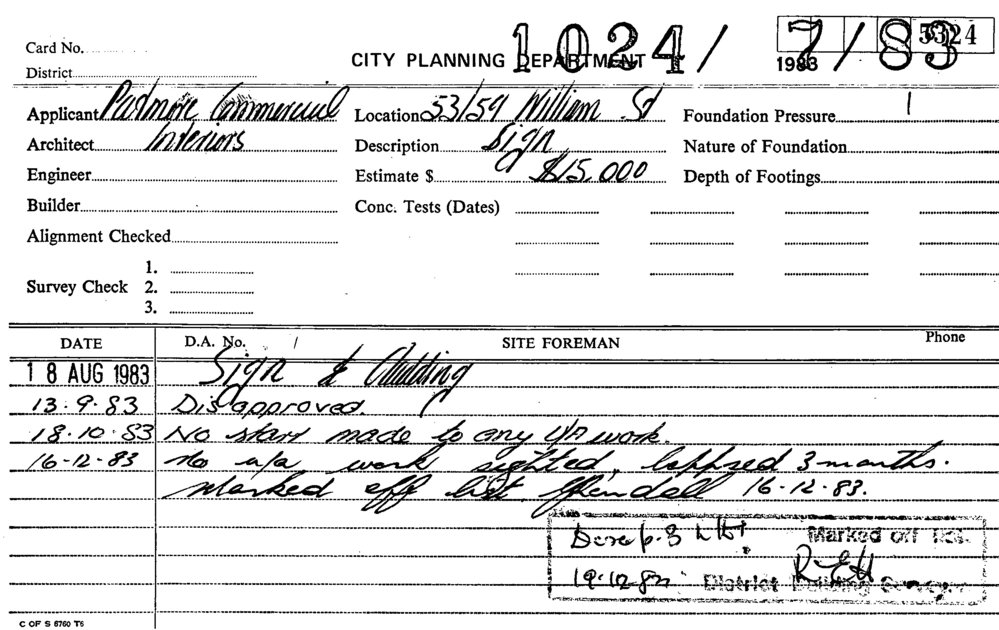 Card No.
CITY PLANNING DEPARTMENT 1024/7/83
5324
District
1983
Applicant Podmore Commercial Location 53/59 William St Foundation Pressure
Architect Interiors Description Sign Nature of Foundation
Engineer Estimate $ $15,000 Depth of Footings
Builder Conc. Tests (Dates)
Alignment Checked
1.
Survey Check 2.
3.
DATE D.A. No. / SITE FOREMAN Phone
18 AUG 1983 Sign & Cladding
13.9.83 Disapproved.
18.10.83 No start made to any U/A work.
16-12-83 No u/a work sighted, lappsed 3 months.
Marked off list. 16-12-83.
Marked off
19.12.83 District Building Surveyor
C OF S 6760 T6